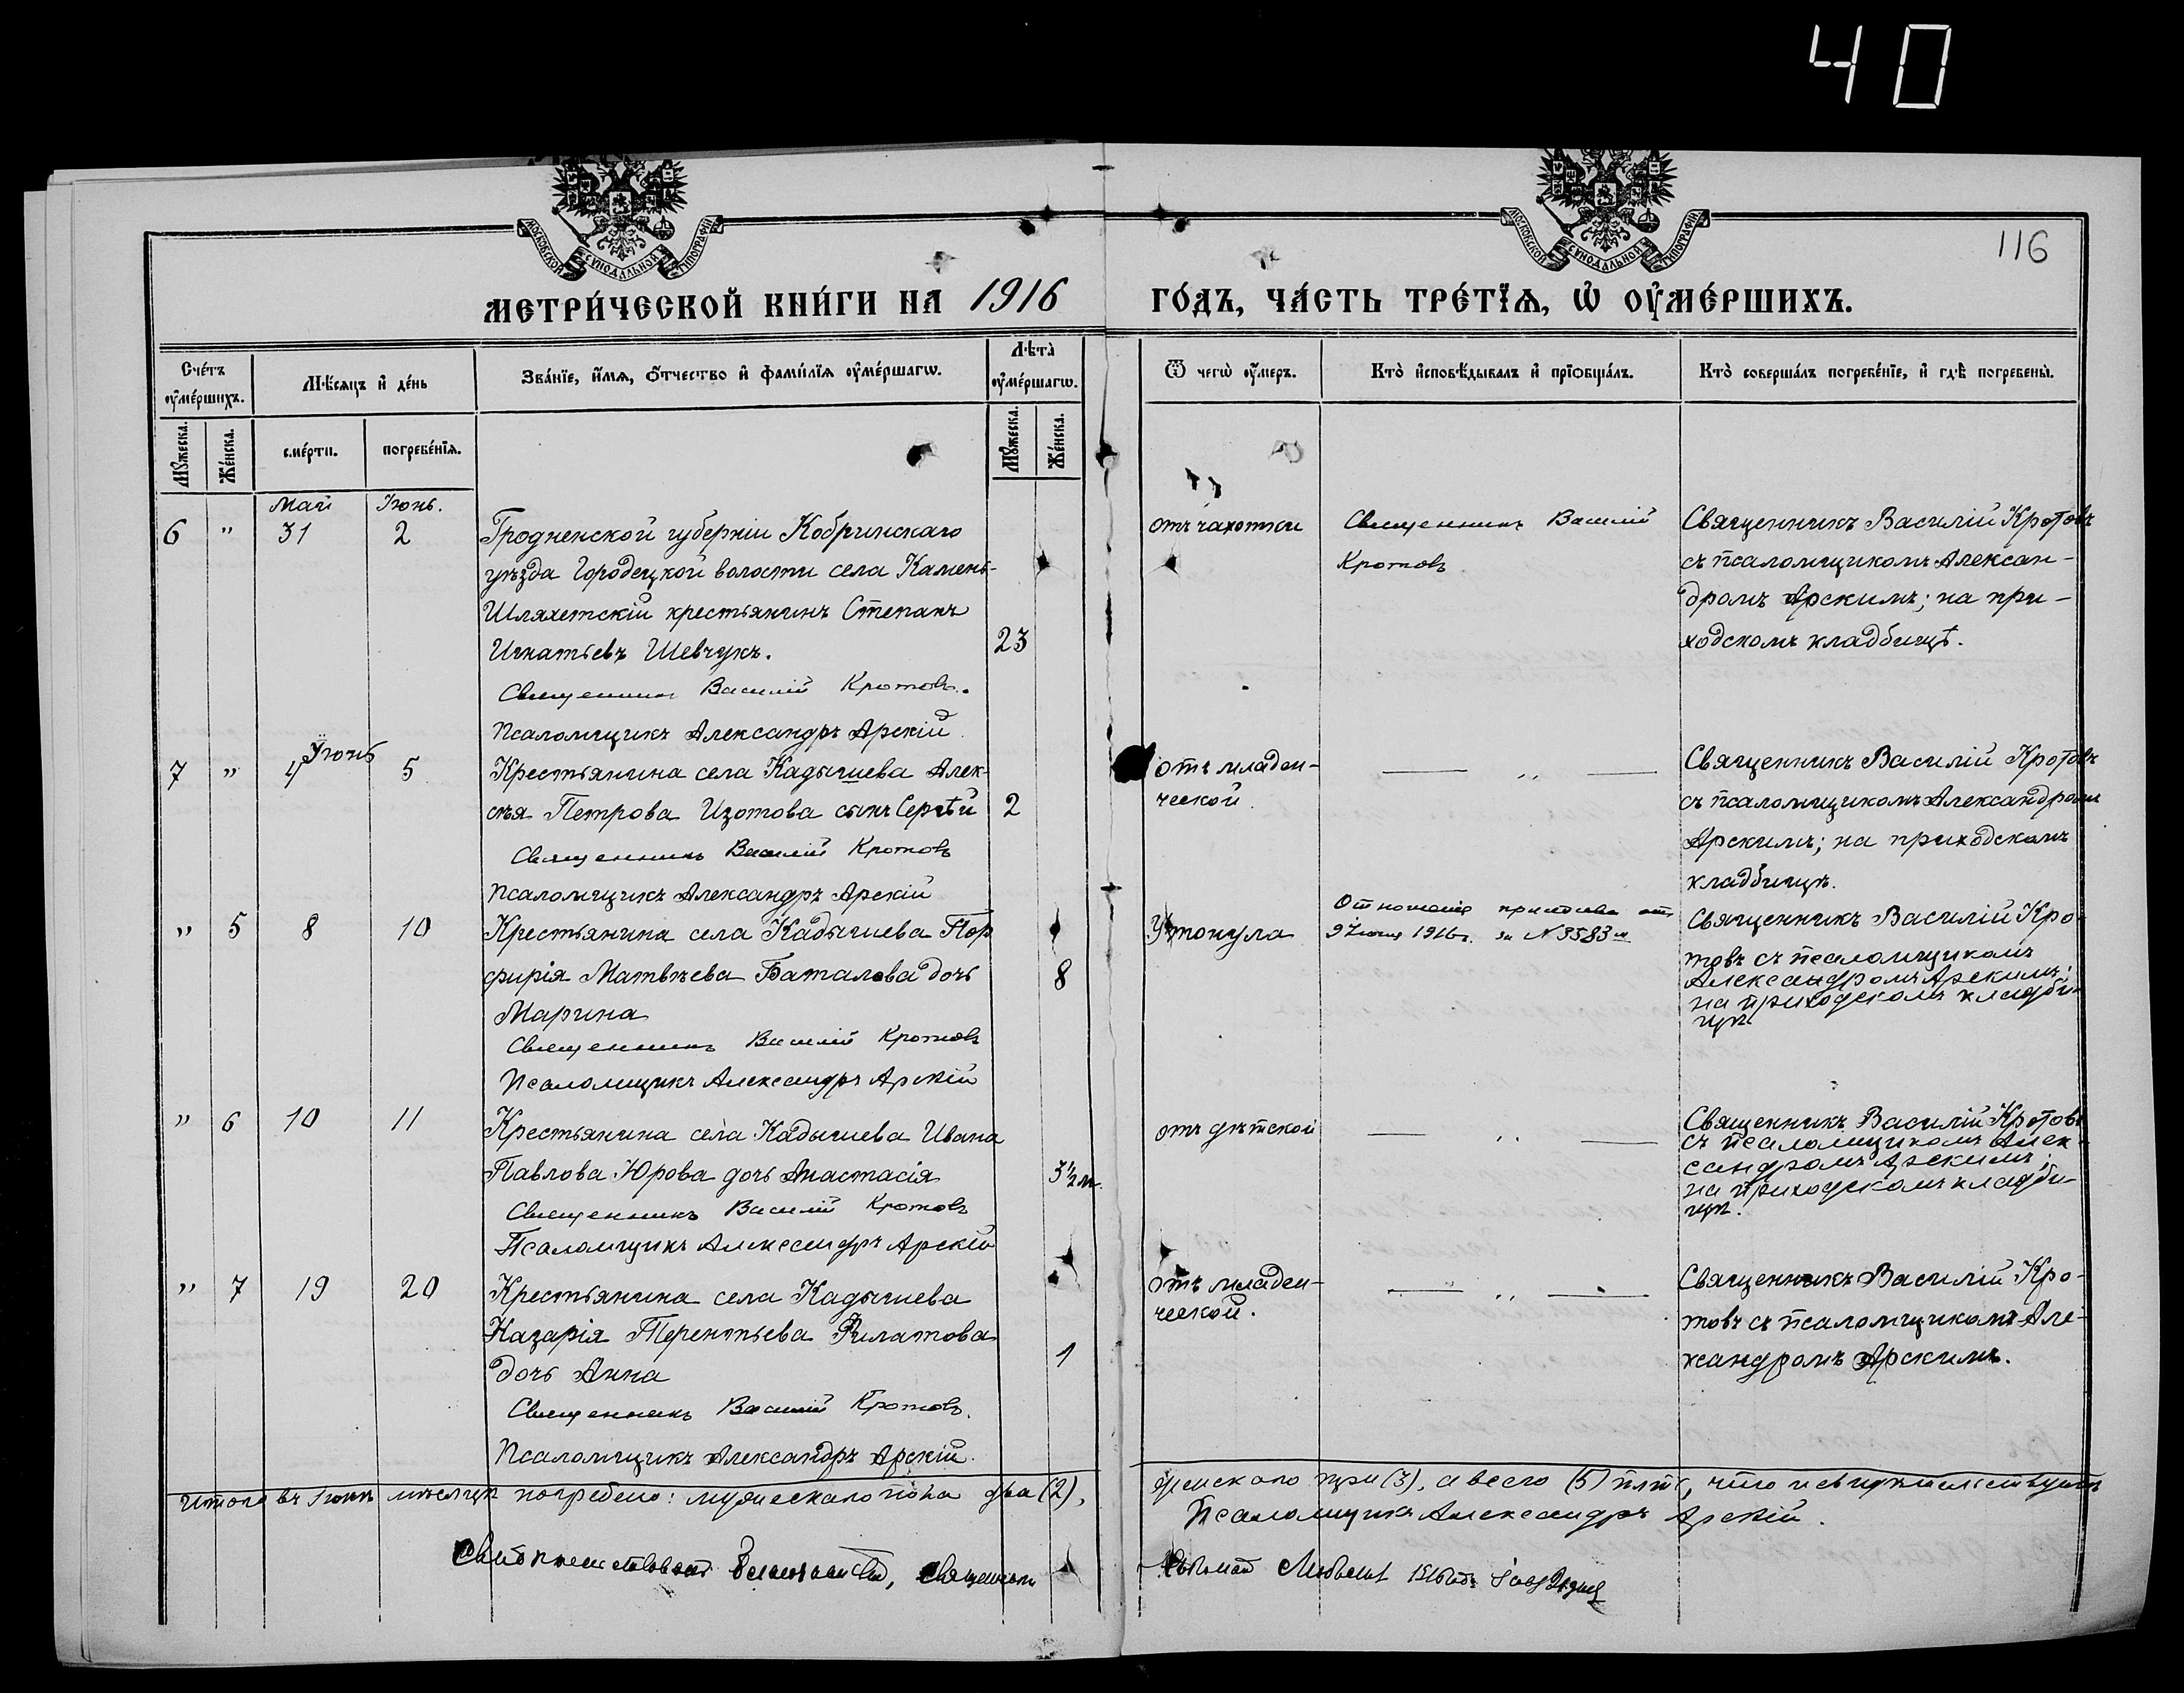 40
МОСКОВСКОЙ СѴНОДАЛЬНОЙ ТИПОГРАФІИ
МОСКОВСКОЙ СѴНОДАЛЬНОЙ ТИПОГРАФІИ
116
МЕТРИ́ЧЕСКОЙ КНИ́ГИ НА 1916 ГО́ДЪ, ЧА́СТЬ ТРЕ́ТЇѦ, Ѡ҆ ОУ҆МЕ́РШИХЪ.
Сче́тъ оу҆ме́ршихъ.
Мꙋ́жеска.
Же́нска.
Мѣ́сяцъ и҆ де́нь
сме́рти.
погребе́нїѧ.
Зва́нїе, и҆́мѧ, ѻ҆́тчество и҆ фами́лїѧ оу҆ме́ршагѡ.
Лѣ́та̀ оу҆ме́ршагѡ.
Мꙋ́жеска.
Же́нска.
Ѿ чегѡ̀ оу҆́меръ.
Кто̀ и҆сповѣ́дывалъ и҆ прїѡбща́лъ.
Кто̀ соверша́лъ погребе́нїе, и҆ гдѣ̀ погребены̀.
Май Іюнь.
6 " 31 2
Гродненской губерніи Кобринскаго
уѣзда Городецкой волости села Камень-
Шляхетскій крестьянинъ Степанъ
Игнатьевъ Шевчукъ. 23
Священникъ Василій Кротовъ.
Псаломщикъ Александръ Арскій
отъ чахотки
Священникъ Василій
Кротовъ
Священникъ Василій Кротовъ
съ псаломщикомъ Алексан-
дромъ Арскимъ; на при-
ходскомъ кладбищѣ.
Іюнь
7 " 4 5
Крестьянина села Кадышева Алек-
сѣя Петрова Изотова сынъ Сергѣй 2
Священникъ Василій Кротовъ
Псаломщикъ Александръ Арскій
отъ младен-
ческой.
— " —
Священникъ Василій Кротовъ
съ псаломщикомъ Александромъ
Арскимъ; на приходскомъ
кладбищѣ.
" 5 8 10
Крестьянина села Кадышева Пор
фирія Матвѣева Баталова дочь 8
Марина
Священникъ Василій Кротовъ
Псаломщикъ Александръ Арскій
Утонула
Отношеніе пристава отъ
9 Іюня 1916 г. за № 3583 м
Священникъ Василій Кро-
товъ съ псаломщикомъ
Александромъ Арскимъ;
на приходскомъ кладби-
щѣ.
" 6 10 11
Крестьянина села Кадышева Ивана
Павлова Юрова дочь Анастасія 3½ м.
Священникъ Василій Кротовъ
Псаломщикъ Александръ Арскій
отъ дѣтской
— " —
Священникъ Василій Кротовъ
съ псаломщикомъ Алек-
сандромъ Арскимъ;
на приходскомъ кладби-
щѣ.
" 7 19 20
Крестьянина села Кадышева
Назарія Терентьева Филатова
дочь Анна 1
Священникъ Василій Кротовъ.
Псаломщикъ Александръ Арскій.
отъ младен-
ческой.
— " —
Священникъ Василій Кро-
товъ съ псаломщикомъ Але-
ксандромъ Арскимъ.
Итого въ Іюнѣ мѣсяцѣ погребено: мужескаго пола два (2), женскаго три (3), а всего (5) пять, что и свидѣтельствуетъ
Псаломщикъ Александръ Арскій.
священникъ